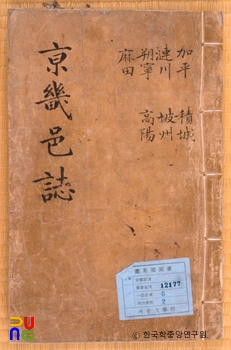 京畿邑誌
加平 積城
漣川 坡州
朔寧 高陽
麻田
12177
6
2
ⓒ 한국학중앙연구원